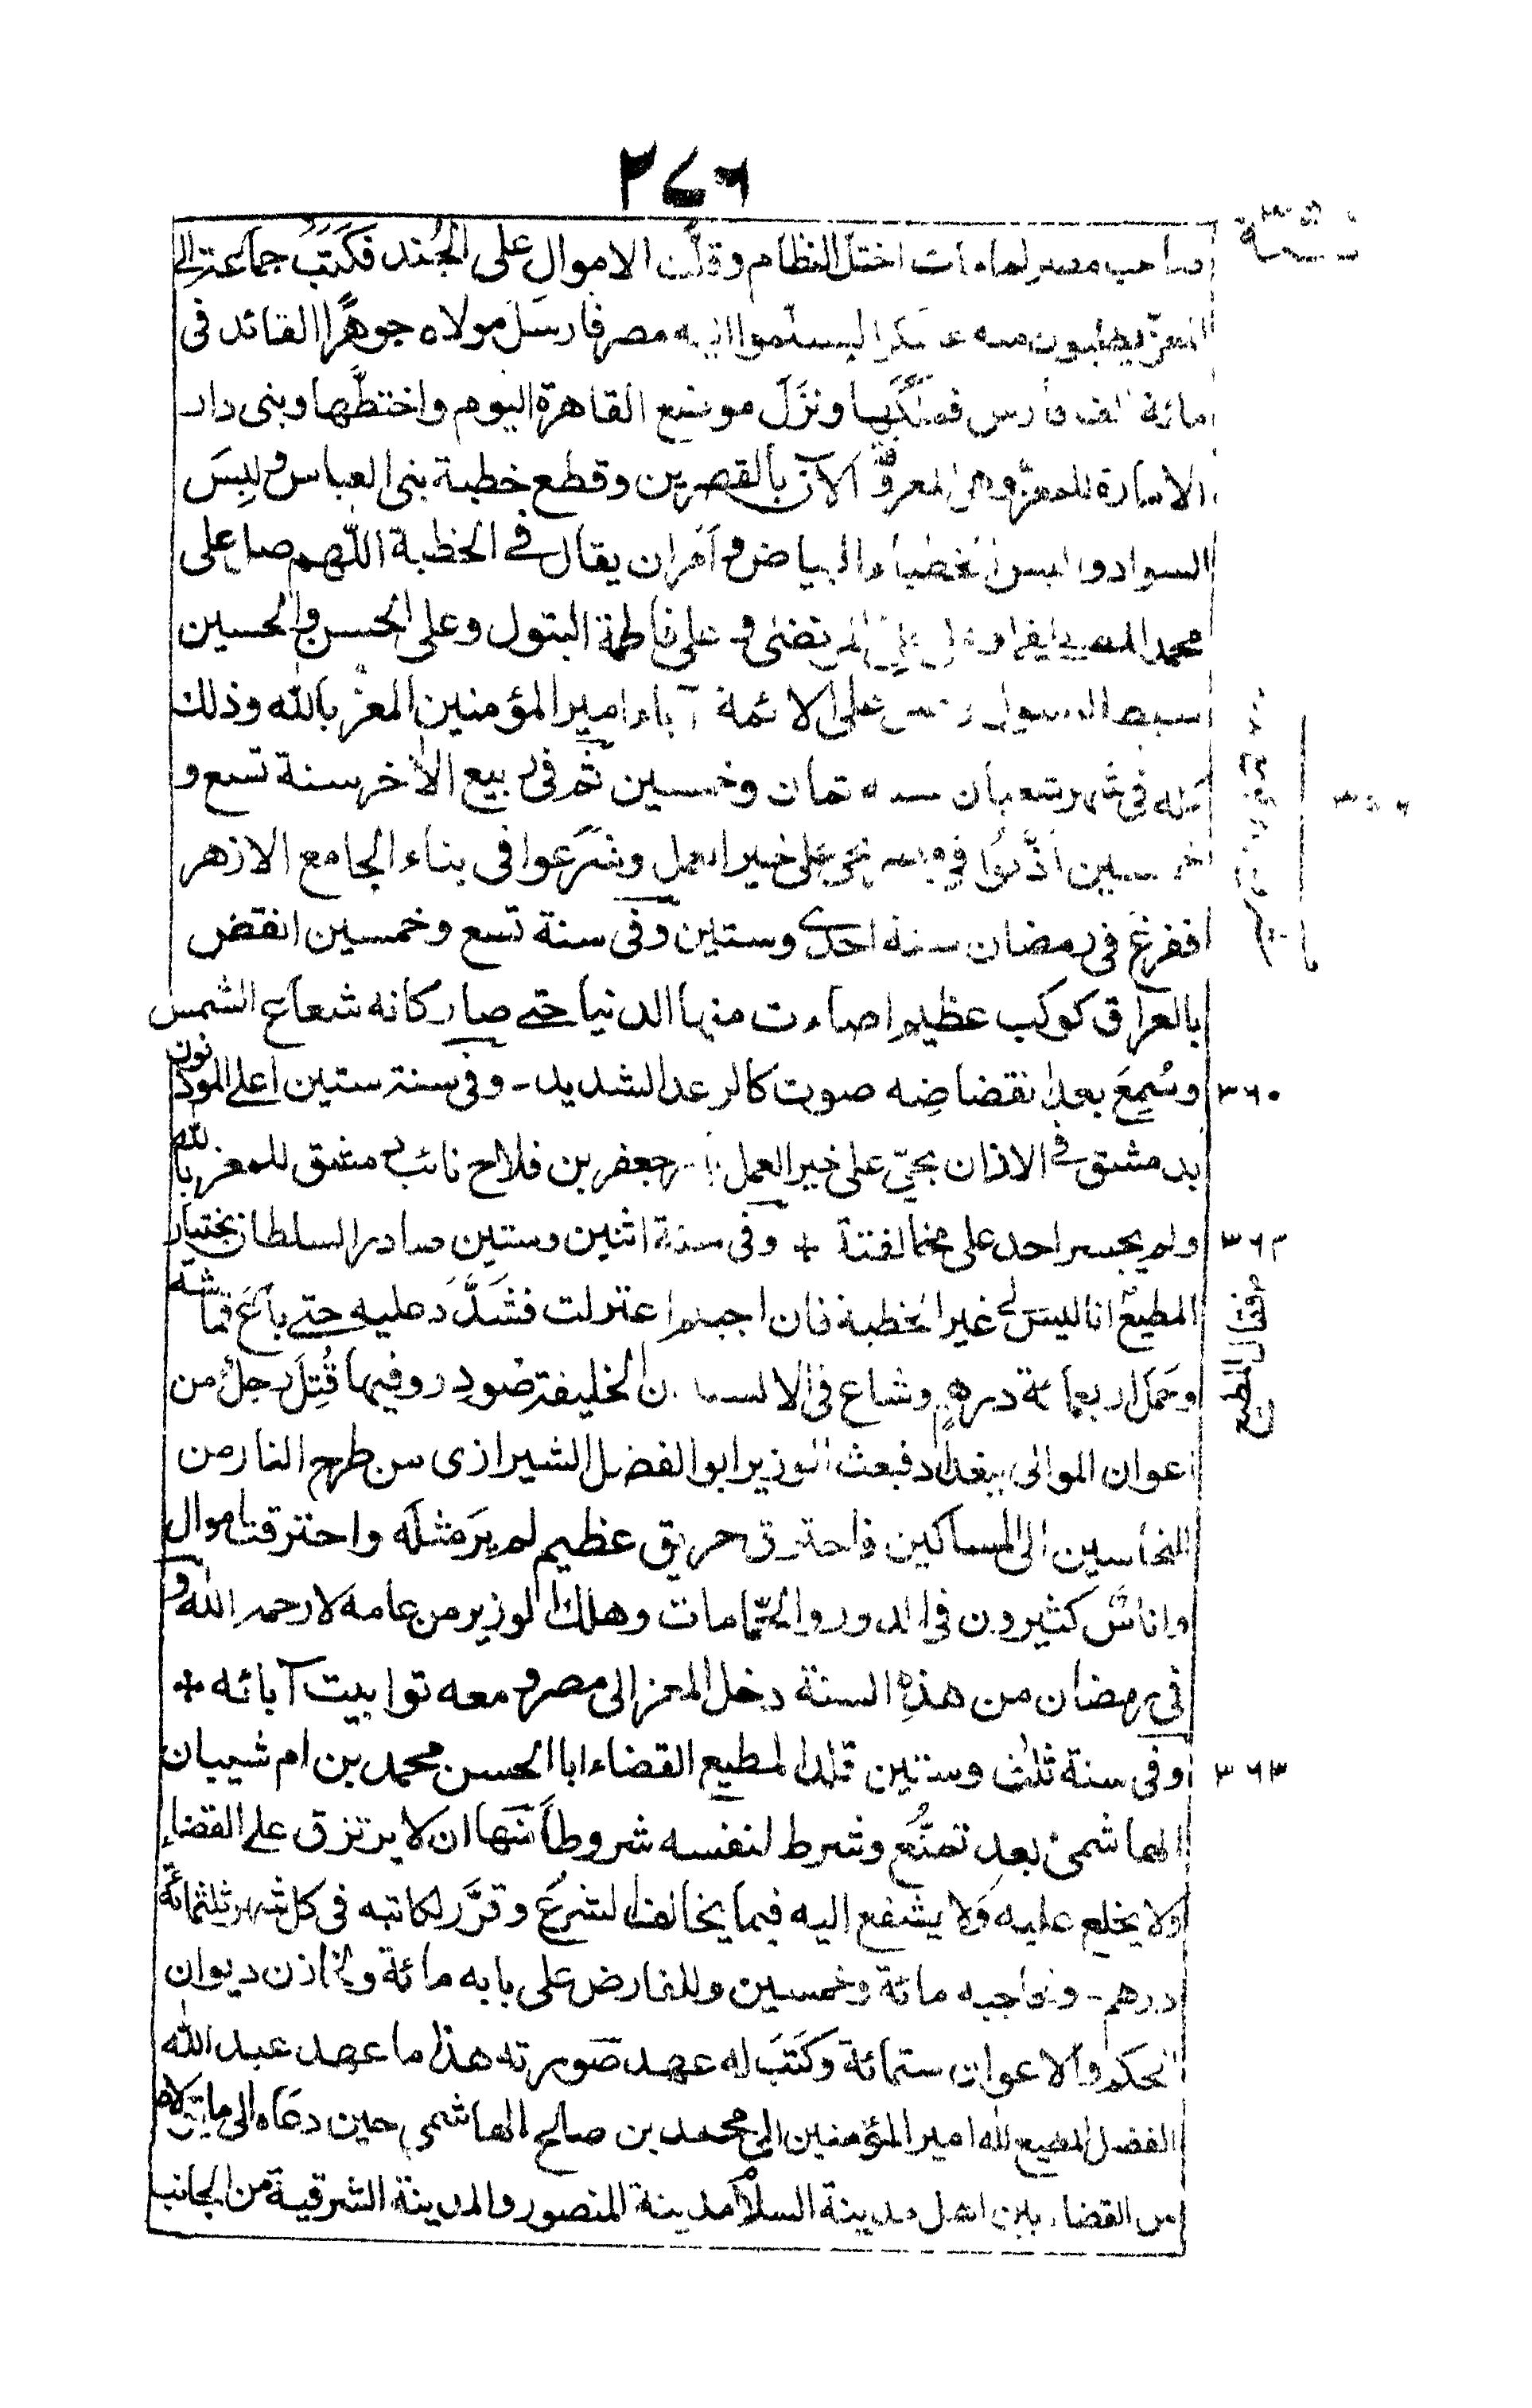 ٢٧٦
صاحب مصر لما مات اختل النظام وقلّت الاموال على الجُند فكَتَبَ جماعة الى
المعز يطلبون منه عسكرا ليسلموا اليه مصر فارسَلَ مولاه جوهرًا القائد فى
مائة الف فارس فملكَها ونزَلَ موضع القاهرة اليوم واختطَّها وبنى دار
الامارة للمعز وهى المعروفة الآن بالقصرين وقطع خطبة بنى العباس ولبِسَ
السواد والبس الخطباء البياض وامر ان يقال فى الخطبة اللّٰهم صل على
محمد المصطفى وعلى علىّ المرتضى وعلى فاطمة البتول وعلى الحسن والحسين
سبط الرسول وصل على الائمة آباء امير المؤمنين المعز باللّٰه وذلك
كله فى شهر شعبان سنة ثمان وخمسين ثم فى ربيع الاٰخر سنة تسع و
خمسين اذّنوا فى مصر بحى على خير العمل وشرعوا فى بناء الجامع الازهر
ففرغ فى رمضان سنة احدى وستين وفى سنة تسع وخمسين انقض
بالعراق كوكب عظيم اضاءت منها الدنيا حتى صار كانه شعاع الشمس
٣٦٠ وسُمِعَ بعد انقضاضِه صوت كالرعد الشديد - وفى سنة ستين اعلن المؤذنون
بدمشق فى الاذان بحىّ على خير العمل بامر جعفر بن فلاح نائب دمشق للمعز باللّٰه
٣٦٢ ولم يجسر احد على مخالفتة + وفى سنة اثنين وستين صادر السلطان بختيار
المطيع انا ليس لى غير الخطبة فان احببتم اعتزلت فشدَّدَ عليه حتى باعَ قماشه
فقال المطيع
وحَمَل اربعمائة درهم وشاع فى الالسنة ان الخليفة صُودِر وفيها قُتِلَ رجلٌ من
اعوان الموالى ببغداد فبعث الوزير ابو الفضل الشيرازى من طرح النار من
النخاسين الى المسماكين فاحترق حريق عظيم لم يرَ مثلَه واحترقت اموال
واناسٌ كثيرون فى الدور والحمّامات وهلك الوزير من عامه لا رحمه اللّٰه و
فى رمضان من هذه السنة دخل المعز الى مصر ومعه توابيت آبائه +
٣٦٣ وفى سنة ثلٰث وستين قلد المطيع القضاء ابا الحسن محمد بن ام شيبان
الهاشمى بعد تمنُّع وشرط لنفسه شروطاً منها ان لا يرتزق على القضاء
ولا يخلع عليه ولا يشفع اليه فيما يخالف الشرع وقرَّر لكاتبه فى كل شهر ثلثمائة
درهم - ولحاجبه مائة وخمسين وللفارض على بابه مائة ولخازن ديوان
الحكم والاعوان ستمائة وكَتَبَ له عهد صورته هذا ما عهد عبد اللّٰه
الفضل المطيع للّٰه امير المؤمنين الى محمد بن صالح الهاشمى حين دعاه الى ما
من القضاء بين اهل مدينة السلام مدينة المنصور والمدينة الشرقية من الجانب